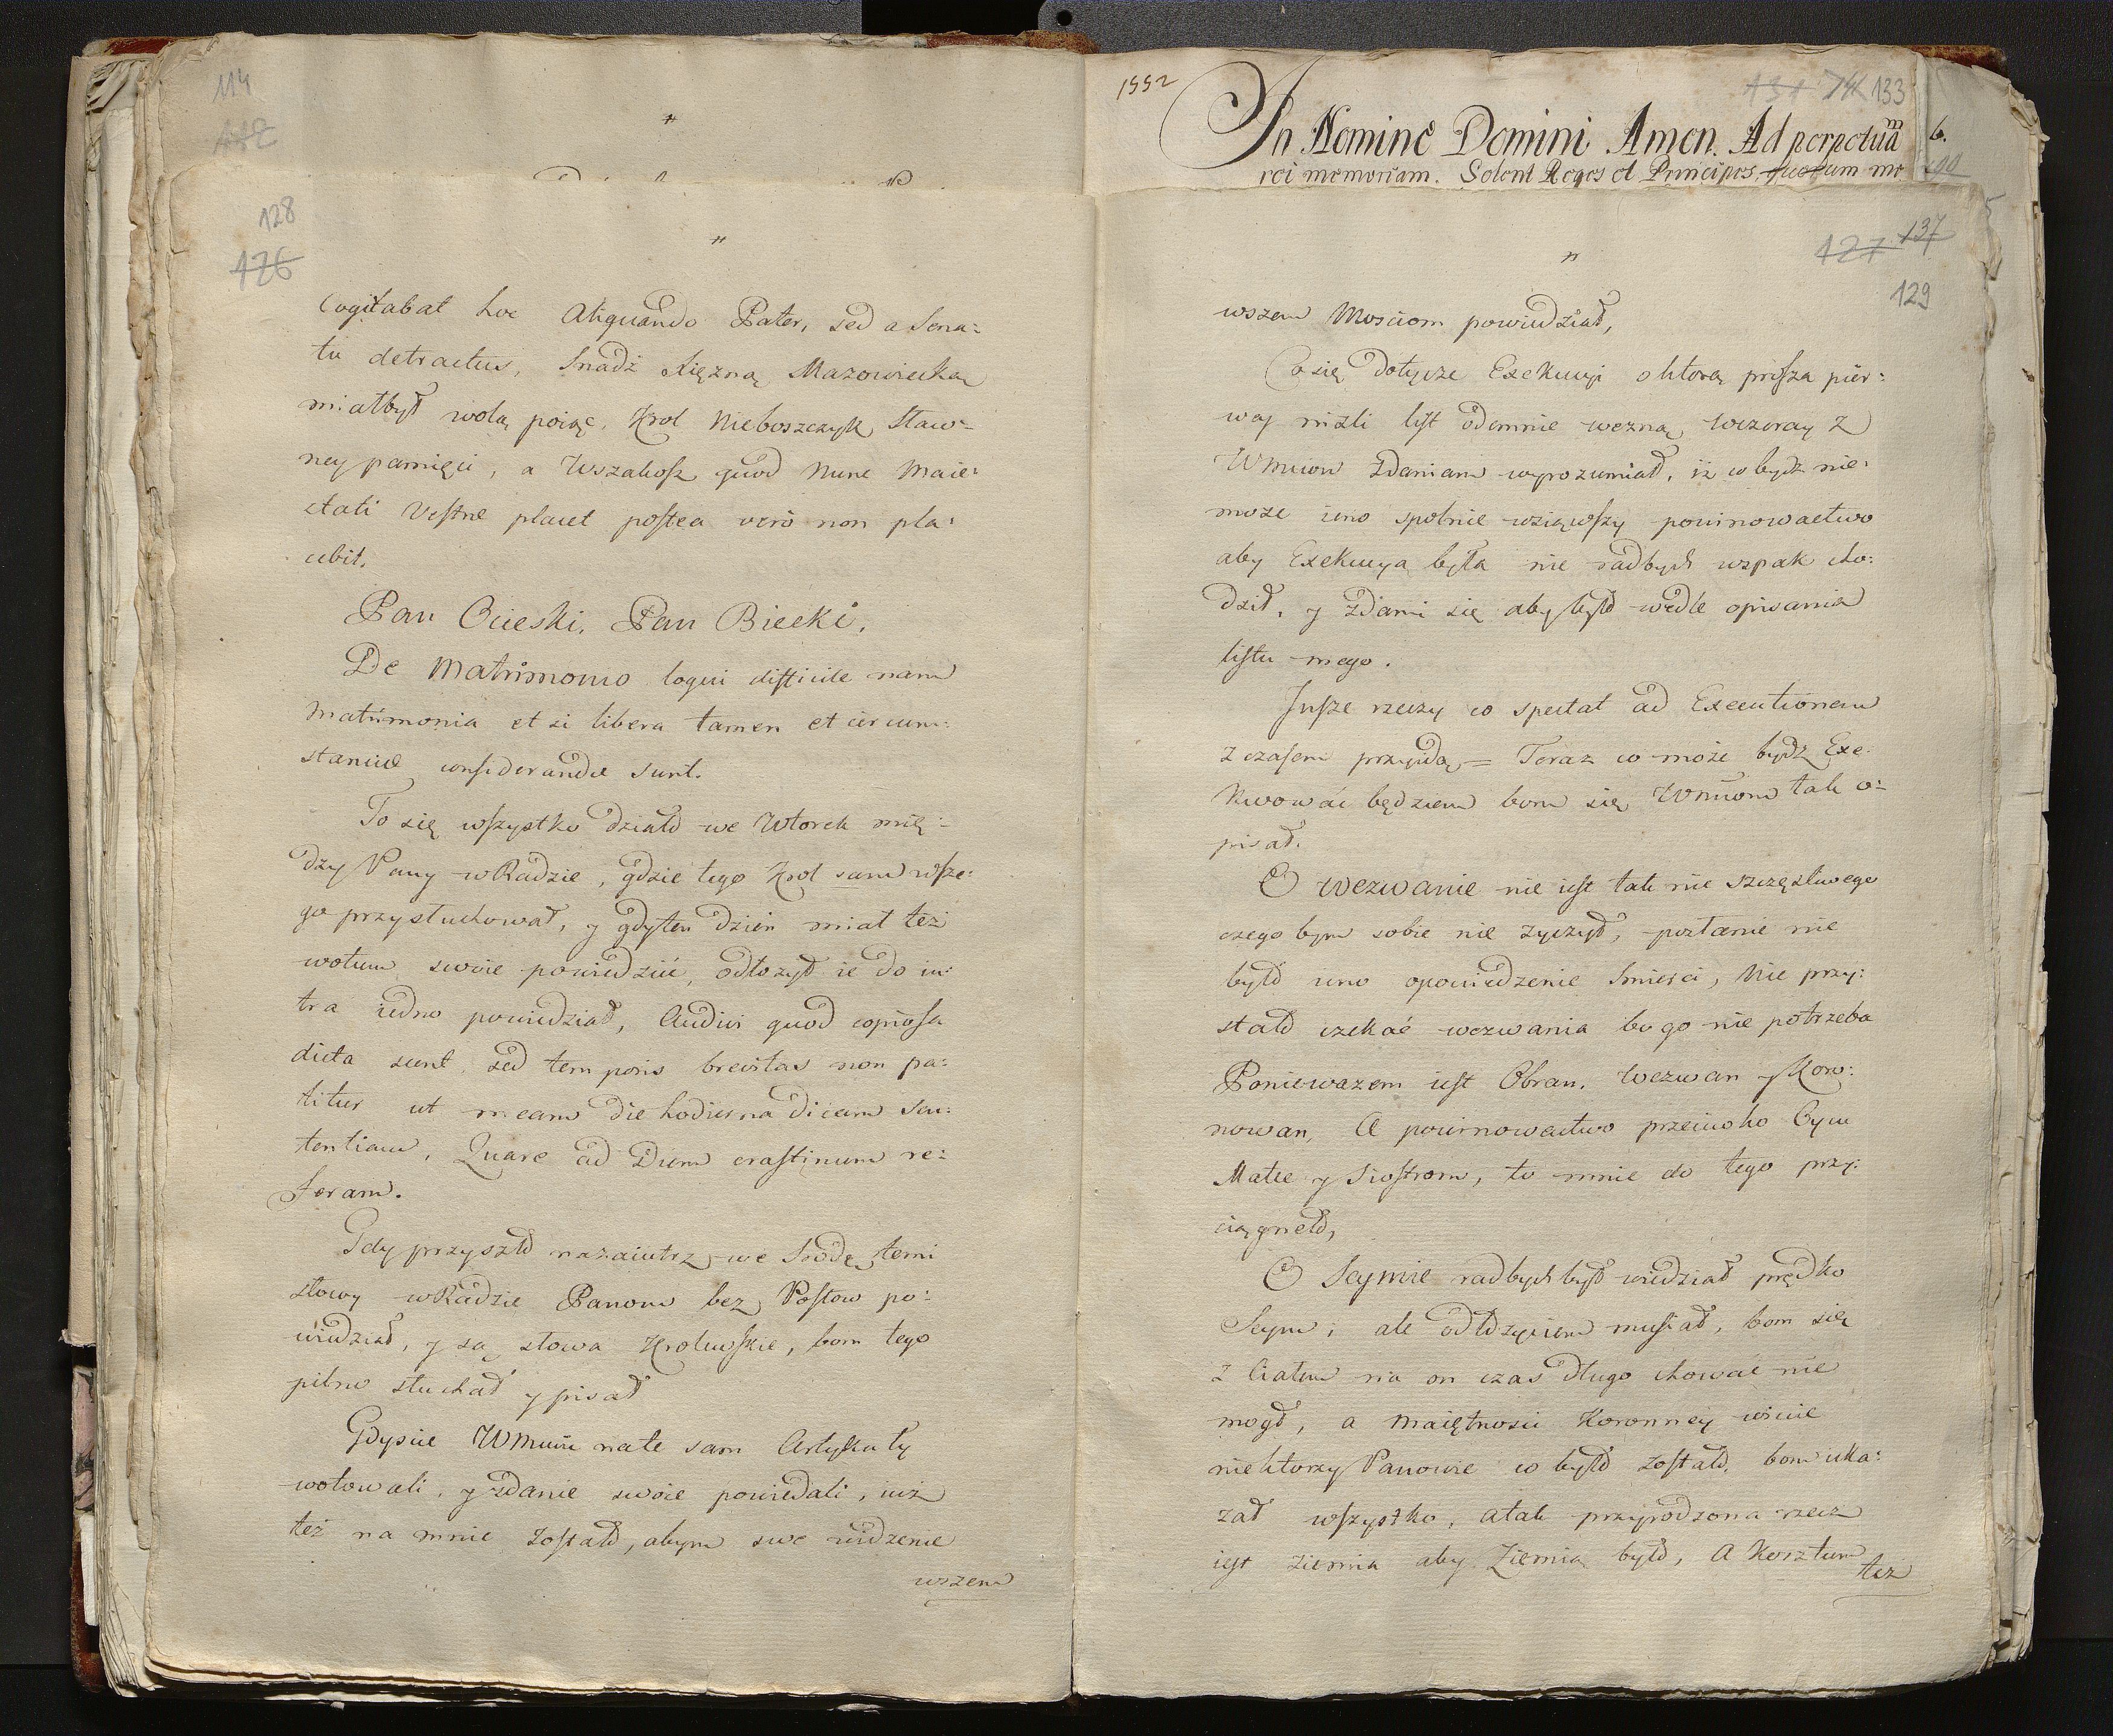 114
112
128
126
Cogitabat hoc Aliquando Pater, sed a Sena:
tu detractus, Snadź Xiężną Mazowiecką
miałbył wolą poiąc, Krol Nieboszczyk Staw:
ney pamięci, a Wszakosz quod Nunc Maie:
stati Vestræ placet postea verò non pla:
cebit.
Pan Ocieski, Pan Biecki,
De Matrimonio loqui difficile nam
Matrimonia et si libera tamen et circum:
stantiæ considerandæ sunt.
To się wszystko działo we Wtorek mię:
dzy Pany w Radzie, gdzie tego Krol sam wsze:
go przysłuchował, y gdyten dzień miał też
wotum swoie powiedzić, odłożył ie do iu:
tra iedno powiedział, Audivi quod copiosa
dicta sunt sed temporis brevitas non pa:
titur ut meam die hodierna dicam sen:
tentiam, Quare ad Diem crastinum re:
feram.
Gdy przyszło nazaiutrz we Srodę temi
słowy w Radzie Panom bez Posłow po:
wiedział, y są słowa Krolewskie, bom tego
pilno słuchał y pisał
Gdyście WMwie nate sam Artykuły
wotowali, y zdanie swoie powiedali, iuż
też na mnie zostało, abym swe widzenie
wszem
1552
131 133
In Nomine Domini Amen. Ad perpetuã
rei memoriam. Solent Reges et Principes quorum me
6.
190
127 137
129
wszem Mosciom powiedział,
Co się dotycze Exekucyi o ktorą prosza pier:
wey niżli lyst odemnie wezną, wczoray z
WMciow zdaniam wyrozumiał, iż to bydz nie:
może ieno społnie wziąwszy powinowactwo
aby Exekucya była nie radbych wspak cho:
dził, y zdami się aby było wedle opisania
listu mego.
Insze rzeczy co spectat ad Executionem
z czasem przyidą = Teraz co może bydź Exe:
kwować będziem bom się WMciom tak o:
pisał.
O wezwanie nie iest tak nie szczęzliwego
czego bym sobie nie życzył, posłanie nie
było ieno opowiedzenie Smierci, Nie przy:
stało czekać wezwania bo go nie potrzeba
Poniewazem iest Obran, Wezwan y Koro:
nowan, A powinowactwo przeciwko Oycu
Matce y Siostrom, to mnie do tego przy:
ciągneło,
O Seymie radbych był widział prędko
Seym; ale odłożyciem musiał, bom się
z Ciałem na on czas długo chować nie
mogł, a Maiętnosci Koronney wiecie
niektorzy Panowie co było zostało, bom uka:
zał wszystko, atak przyrodzona rzecz
iest Ziemia aby Ziemią było, A Kosztem
tez